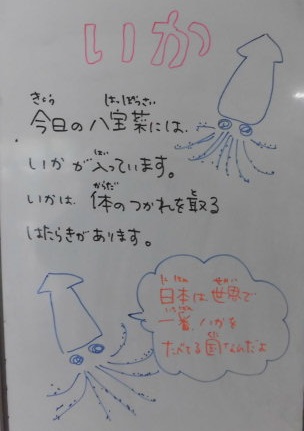 いか
きょう はっぽうさい
今日の八宝菜には、
はい
いかが入っています。
からだ
いかは、体のつかれを取る
はたらきがあります。
せかい
日本は、世界で
いちばん
一番、いかを
たべてる国なんだよ